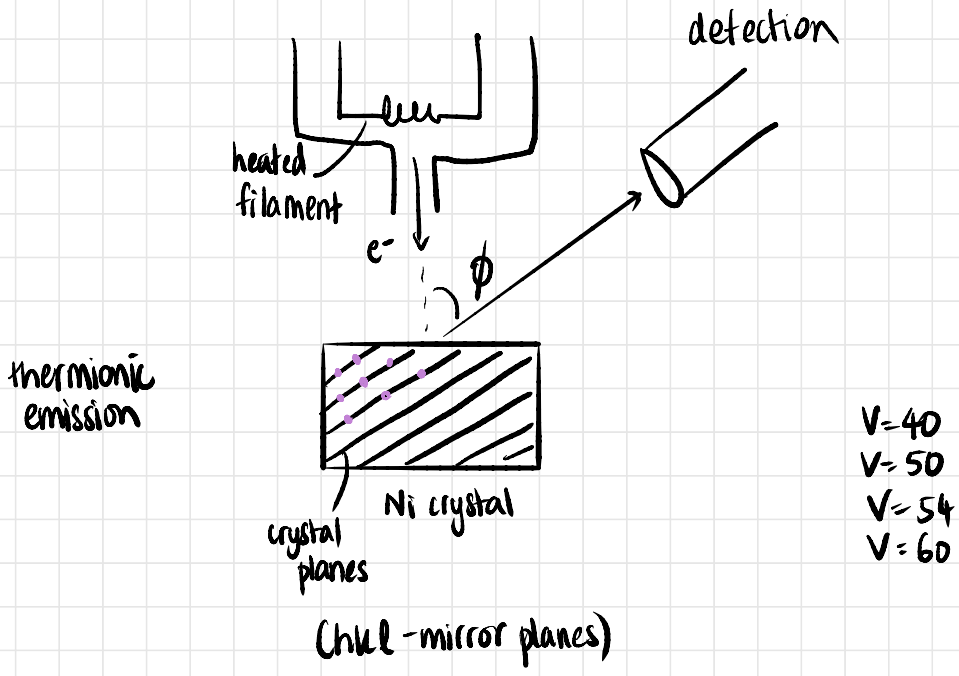 detection
heated
filament
e-
ϕ
thermionic
emission
V=40
V=50
V=54
V=60
Ni crystal
crystal
planes
(hkl - mirror planes)